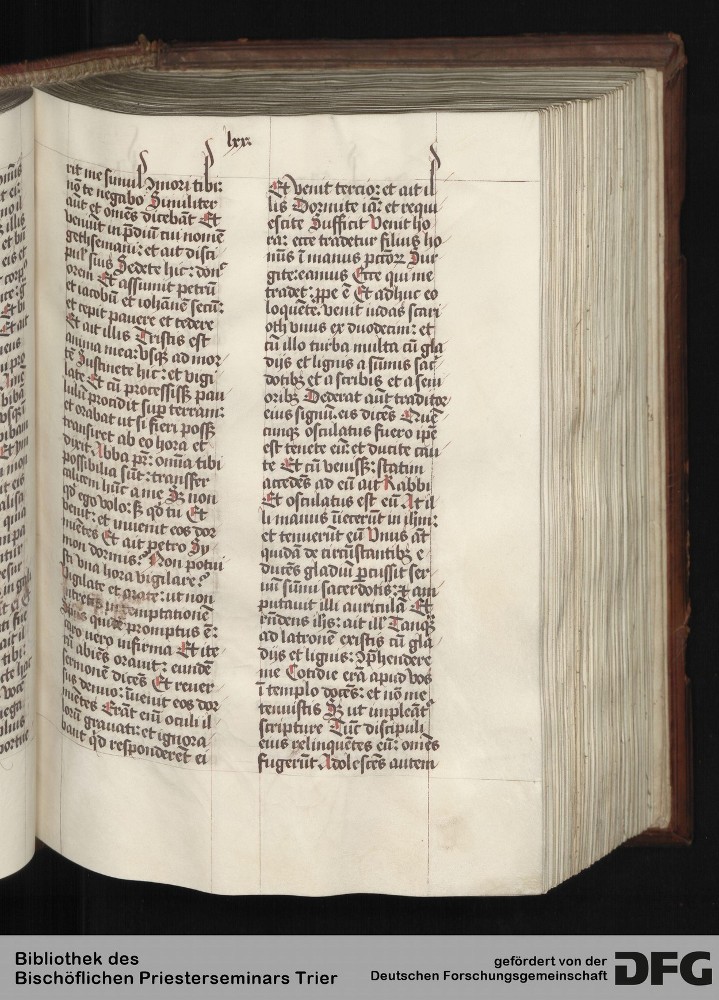 lxx.
rit me simul ɔmori tibi:
nō te negabo Similiter
aūt et om̄es dicebāt Et
veniūt in p̄diū cui nomē
gethsemani: et ait disci
pul' suis Sedete hic: don̄
orem Et assumit petrū
et iacobū et iohānē secū:
et cepit pauere et tedere
Et ait illis Tristis est
anima mea: vsqȝ ad mor
tē Sustinete hic: et vigi
late Et cū processissȝ pau
lulū procidit sup̄ terram:
et orabat ut si fieri possȝ
transiret ab eo hora et
dixit. Abba pr̄: omīa tibi
possibilia sūt: transfer
calicem hūc a me Sȝ non
qd̄ ego volo: sȝ qd̄ tu Et
venit: et inuenit eos dor
miētes Et ait petro Sy
mon dormis? Non potui
sti vna hora vigilare?
Vigilate et orate: ut non
intretis in temptationē
Sp̄us quidē promptus ē:
caro vero infirma Et ite
rū abiēs orauit: eundē
sermonē dicēs Et reuer
sus denuo: īuenit eos dor
miētes Erāt eiū oculi il
lorū grauati: et ignora
bant qd̄ responderēt ei
Et venit tercio: et ait il
lis Dormite iā: et requi
escite Sufficit Venit ho
ra: ecce tradetur filius ho
mīs ī manus pctōȝ Sur
gite: eamus Ecce qui me
tradet: ꝓpe ē Et adhuc eo
loquēte. venit iudas scari
oth vnus ex duodecim: et
cū illo turba multa cū gla
dijs et lignis a sūmis sac̄
dotibȝ et a scribis et a seni
oribȝ Dederat aūt traditor
eius signū. eis dicēs Quē
cūnqȝ osculatus fuero ipē
est tenete eū: et ducite cau
te Et cū venissȝ: statim
accedēs ad eū ait Rabbi
Et osculatus est eū At il
li manus īiecerūt in ihm:
et tenuerūt eū Vnus aūt
quidā de circūstantibȝ e
ducēs gladiū ꝑcussit ser
uū sūmi sacerdotis: et am
putauit illi auriculā Et
rn̄dens ihs: ait ill' Tanqȝ
ad latronē existis cū gla
dijs et lignis: ɔp̄hendere
me Cotidie erā apud vos
ī templo docēs: et nō me
tenuistis Sȝ ut impleāt'
scripture Tūc discipuli
eius relinquētes eū: om̄es
fugerūt Adolescēs autem
Bibliothek des
Bischöflichen Priesterseminars Trier
gefördert von der
Deutschen Forschungsgemeinschaft
DFG